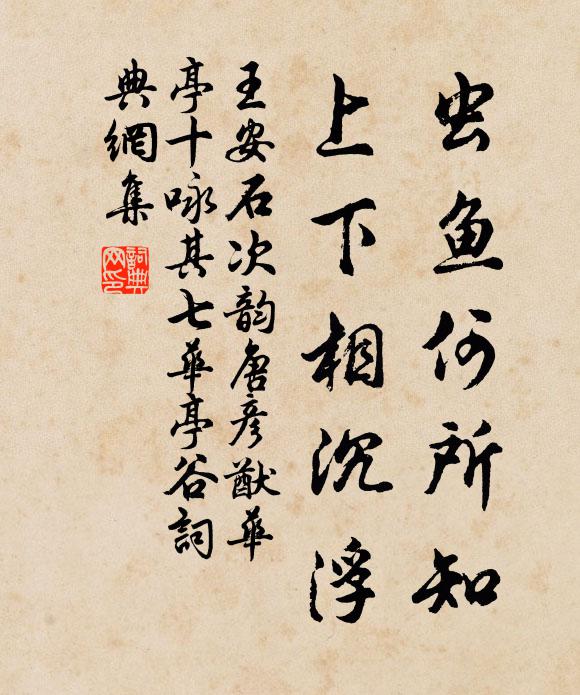 虫鱼何所知
上下相沉浮
王安石次韵唐彦猷華
亭十咏其七華亭谷詞
典網集
詞典
网印